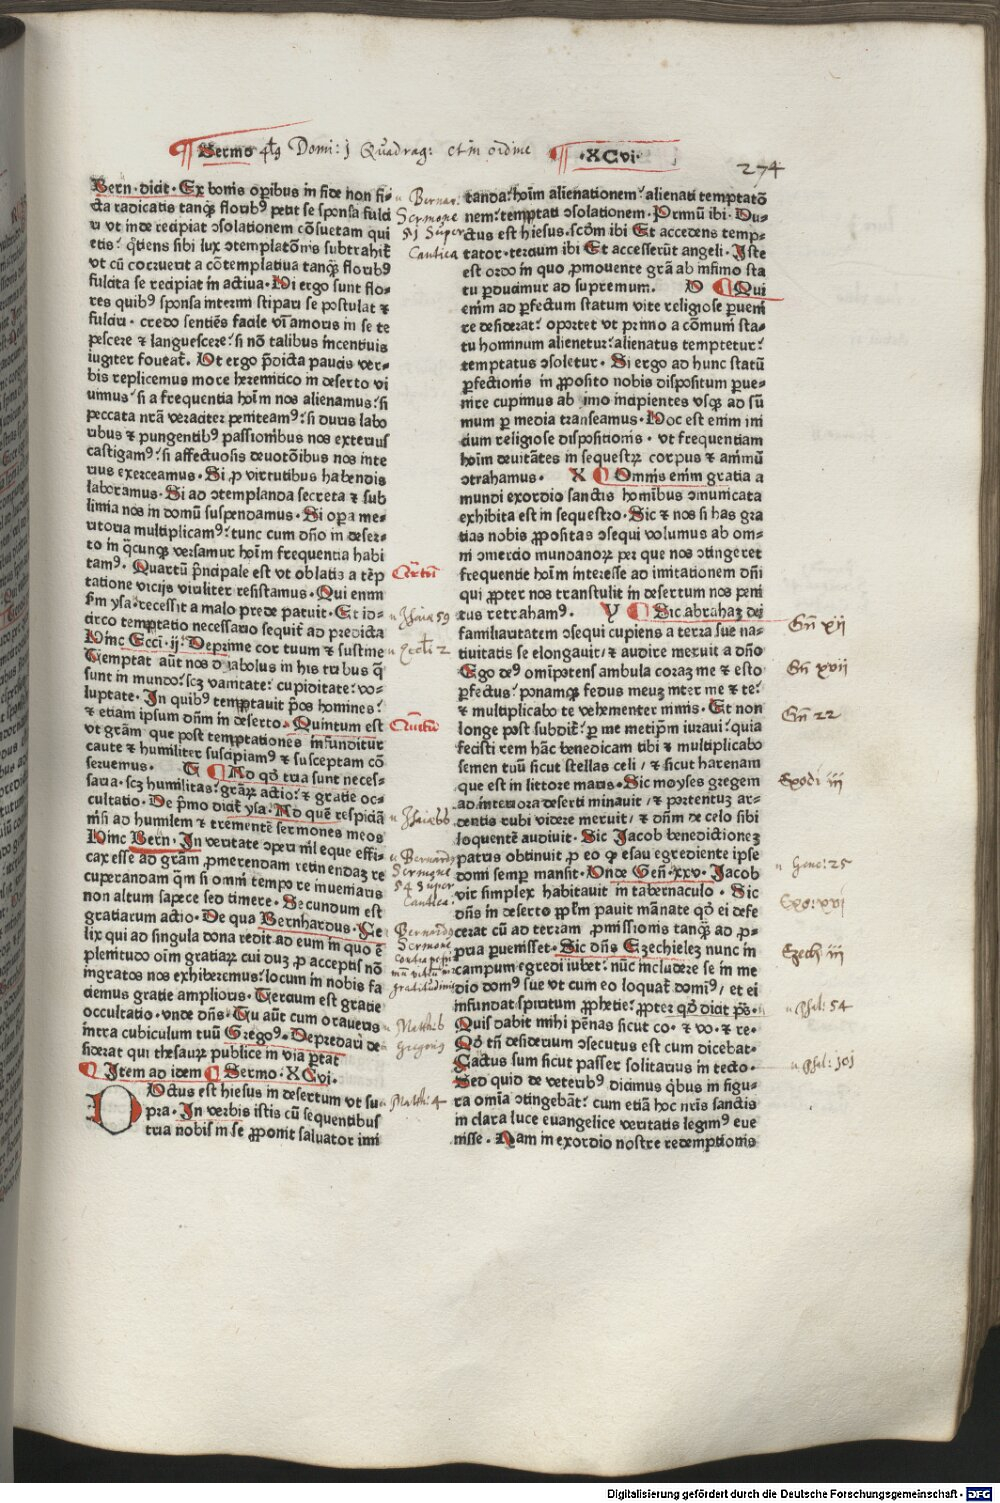 Sermo 4tꝰ Domi: j Quadrag: et in ordine ·XCvi·
274
Bern· dicit· Ex bonis oꝑibus in fide non fi⸗
cta radicatis tanqȝ floribꝰ petit se sponsa fulci
ri vt inde recipiat ↄsolationem ↄsuetam qui
etis: q̄tiens sibi lux ↄtemplatōnis subtrahit̄
vt cū cōruerit a cōtemplatiua tanqȝ floribꝰ
fulcita se recipiat in actiua· Hi ergo sunt flo⸗
res quibꝰ sponsa interim stipari se postulat ⁊
fulciri· credo sentiēs facile vim amoris in se te
pescere ⁊ languescere: si nō talibus incentiuis
iugiter foueat̄· Vt ergo p̄dicta paucis ver⸗
bis replicemus more heremitico in deserto vi
uimus: si a frequentia hoīm nos alienamus: si
peccata nr̄a veraciter peniteamꝰ: si duris labo
ribus ⁊ pungentibꝰ passionibus nos exterius
castigamꝰ: si affectuosis deuotōibus nos inte
rius exerceamus· Si ꝓ virtutibus habendis
laboramus· Si ad ↄtemplanda secreta ⁊ sub
limia nos in domū suspendamus· Si oꝑa me⸗
ritoria multiplicamꝰ: tunc cum dn̄o in deser⸗
to in q̄cunqȝ versamur hoīm frequentia habi
tamꝰ· Quartū p̄ncipale est vt oblatis a tēp
tatione vicijs viriliter resistamus· Qui enim
ſm ysa· recessit a malo prede patuit· Et id⸗
circo temptatio necessario sequit̄ ad predicta
Hinc Ecci· ij: Deprime cor tuum ⁊ sustine
Temptat aūt nos dyabolus in his tribus q̄
sunt in mundo: scȝ vanitate: cupiditate: vo⸗
luptate· In quibꝰ temptauit p̄os homines:
⁊ etiam ipsum dn̄m in deserto· Quintum est
vt grām que post temptationes infunditur
caute ⁊ humiliter suscipiamꝰ ⁊ susceptam cō
seruemus· T Ad qd̄ tria sunt neces⸗
saria· scȝ humilitas: grāꝝ actio: ⁊ gratie oc⸗
cultatio· De p̄mo dicit̄ ysa· Ad quē respiciā
nisi ad humilem ⁊ trementē sermones meos
Hinc Bern· In veritate ↄperi nil eque effi⸗
cax esse ad grām ꝓmerendam retinendaȝ re
cuperandam q̄m si omni tempore inueniaris
non altum sapere sed timere· Secundum est
gratiarum actio· De qua Bernhardus· Fe
lix qui ad singula dona redit ad eum in quo ē
plenitudo oīm gratiaꝝ cui duȝ ꝓ acceptis nō
ingratos nos exhibemus: locum in nobis fa
ciemus gratie amplioris· Tercium est gratie
occultatio· vnde dn̄s· Tu aūt cum oraueris
intra cubiculum tuū Gregoꝰ· Depredari de
siderat qui thesauꝝ publice in via ꝑtat
Item ad idem Sermo·XCvi·
Dctus est hiesus in desertum vt su⸗
pra· In verbis istis cū sequentibus
tria nobis in se ꝓponit saluator imi
Bernar:
Sermone
51 Super
Cantica
Qr̄tū
Isaia 59
Eccli 2
Quītū
Isaia 66
Bernardꝰ
Sermone
54 Super
Cantica·
Bernardꝰ
Sermone
Matth: 6
Gregoriꝰ
Matth: 4
tanda: hoīm alienationem: alienati temptatō
nem: temptati ↄsolationem· Primū ibi· Du⸗
ctus est hiesus· scōm ibi Et accedens temp⸗
tator· tercium ibi Et accesserūt angeli· Iste
est ordo in quo ꝓmouente grā ab infimo sta
tu ꝑducimur ad supremum· V Qui
enim ad ꝑfectum statum vite religiose ꝑueni
re desiderat: oportet vt primo a cōmuni sta⸗
tu hominum alienetur: alienatus temptetur:
temptatus ↄsoletur· Si ergo ad hunc statū
ꝑfectionis in ꝓposito nobis dispositum ꝑue⸗
nire cupimus ab imo incipientes vsqȝ ad sū
mum ꝑ media transeamus· Hoc est enim ini
cium religiose dispositionis· vt frequentiam
hoīm deuitātes in sequestꝝ corpus ⁊ animū
ↄtrahamus· X Omnis enim gratia a
mundi exordio sanctis hominibus ↄmunicata
exhibita est in sequestro· Sic ⁊ nos si has gra
tias nobis ꝓpositas ↄsequi volumus ab om⸗
ni ↄmercio mundanoꝝ per que nos ↄtingeret
frequentie hoīm interesse ad imitationem dn̄i
qui ꝓpter nos transtulit in desertum nos peni
tus retrahamꝰ· Y Sic abrahaȝ dei
familiaritatem ↄsequi cupiens a terra sue na⸗
tiuitatis se elongauit/ ⁊ audire meruit a dn̄o
Ego deꝰ omīpotens ambula coraȝ me ⁊ esto
ꝑfectus: ponamqȝ fedus meuȝ inter me ⁊ te:
⁊ multiplicabo te vehementer nimis· Et non
longe post subdit̄: ꝑ me metipm̄ iuraui: quia
fecisti rem hāc benedicam tibi ⁊ multiplicabo
semen tuū sicut stellas celi/ ⁊ sicut harenam
que est in littore maris· Sic moyses gregem
ad interiora deserti minauit/ ⁊ portentuȝ ar⸗
dentis rubi videre meruit/ ⁊ dn̄m de celo sibi
loquentē audiuit· Sic Jacob benedictioneȝ
patris obtinuit ꝓ eo ꝙ esau egrediente ipse
domi semꝑ mansit· Vnde Gen̄·xxv· Jacob
vir simplex habitauit in tabernaculo· Sic
dn̄s in deserto ꝓplm̄ pauit mānate qd̄ ei defe
cerat cū ad terram ꝓmissionis tanqȝ ad ꝓ⸗
pria ꝑuenisset· Sic dn̄s Ezechieleȝ nunc in
campum egredi iubet: nūc includere se in me
dio domꝰ sue vt cum eo loquat̄ domiꝰ/ et ei
infundat spiritum ꝓphetie: ꝓpter qd̄ dicit p̄s·
Quis dabit mihi pēnas sicut co· ⁊ vo· ⁊ re·
Qd̄ tn̄ desiderium ↄsecutus est cum dicebat·
Factus sum sicut passer solitarius in tecto·
Sed quid de veteribꝰ dicimus q̄bus in figu⸗
ra omīa ↄtingebāt: cum etiā hoc nr̄is sanctis
in clara luce euangelice veritatis legimꝰ eue
nisse· Nam in exordio nostre redemptionis
Gn̄ xij
Gn̄ xvij
Gn̄ 22
Exodi iij
Gene: 25
Exo: xvj
Ezech: iij
Psal: 54
Psal: 101
Digitalisierung gefördert durch die Deutsche Forschungsgemeinschaft - DFG